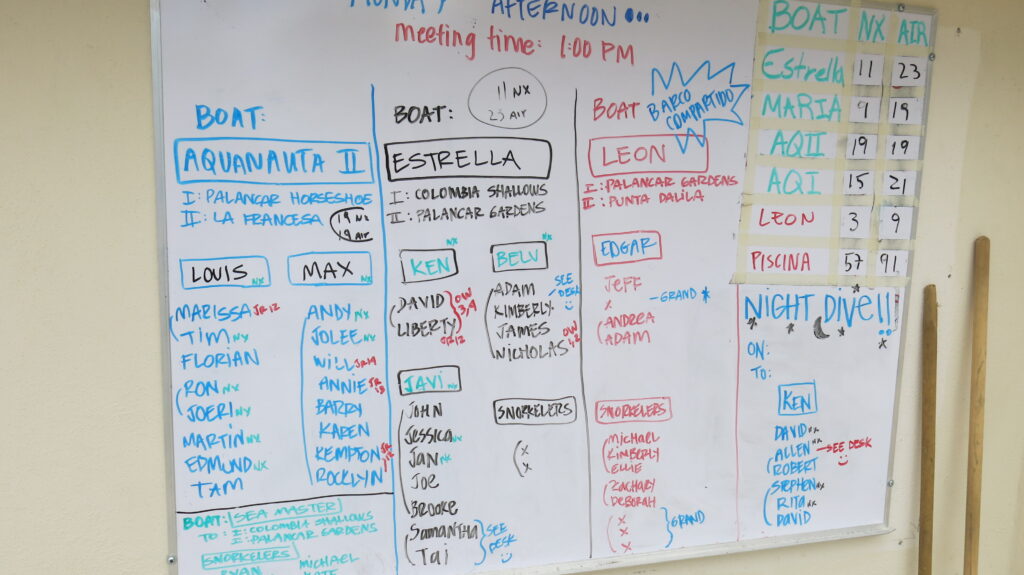 MONDAY AFTERNOON
meeting time: 1:00 PM
BOAT:
AQUANAUTA II
I: PALANCAR HORSESHOE
II: LA FRANCESA
19 NX
19 AIR
LOUIS NX
MARISSA JR 12
TIM NX
FLORIAN
RON NX
JOERI NX
MARTIN NX
EDMUND NX
TAM
MAX NX
ANDY NX
JOLEE NX
WILL JR 14
ANNIE JR 13
BARRY
KAREN
KEMPTON JR
ROCKLYN
BOAT: SEA MASTER
TO: I: COLOMBIA SHALLOWS
II: PALANCAR GARDENS
SNORKELERS
RYAN
MICHAEL
KATE
BOAT:
11 NX
23 AIR
ESTRELLA
I: COLOMBIA SHALLOWS
II: PALANCAR GARDENS
KEN NX
DAVID
LIBERTY JR 12
OW
3,4
BELV NX
ADAM
KIMBERLY
JAMES
NICHOLAS
SEE
DESK
OW
JAVI NX
JOHN
Jessica NX
JAN NX
JOE
BROOKE
SAMANTHA
TAI
SEE
DESK
SNORKELERS
x
x
BOAT
BARCO
COMPARTIDO
LEON
I: PALANCAR GARDENS
II: PUNTA DALILA
EDGAR
JEFF
x - GRAND *
ANDREA
ADAM
SNORKELERS
MICHAEL
KIMBERLY
ELLIE
ZACHARY
DEBORAH
x
x
x
GRAND
BOAT NX AIR
Estrella 11 23
MARIA 9 19
AQII 19 19
AQI 15 21
LEON 3 9
PISCINA 57 91
NIGHT DIVE!!
ON:
TO:
KEN
DAVID NX
ALLEN NX → SEE DESK
ROBERT
STEPHEN NX
RITA NX
DAVID